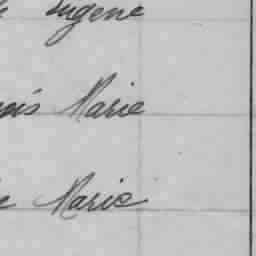 Eugene
Marie
Marie